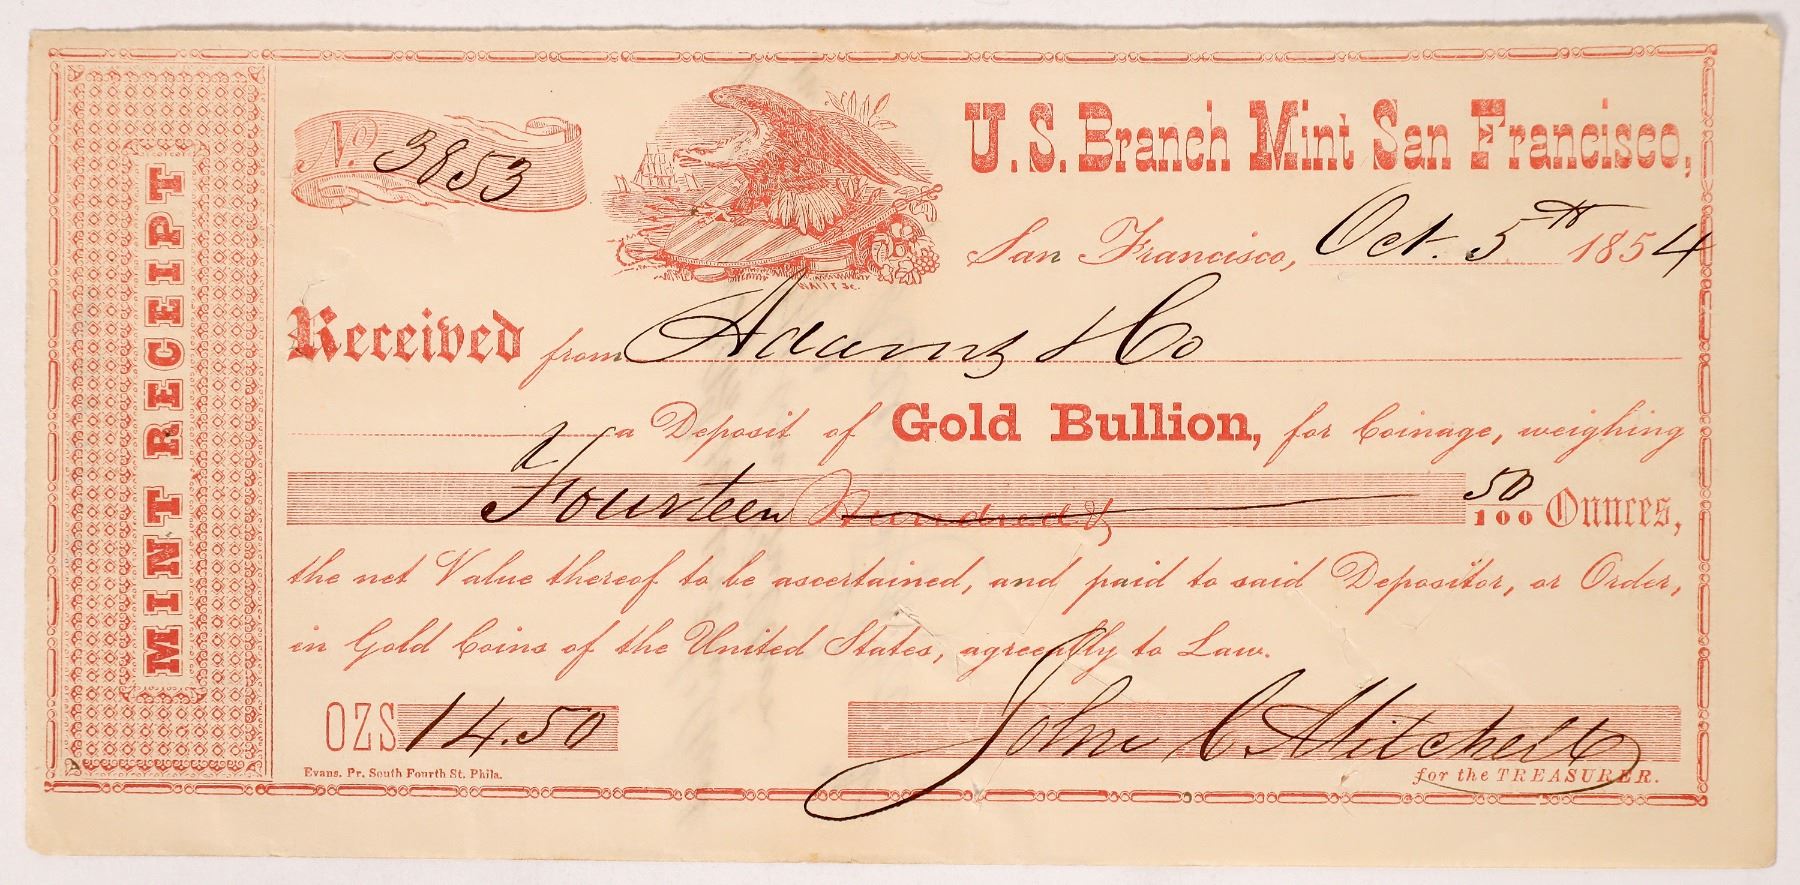 MINT RECEIPT
No. 3853
U.S. Branch Mint San Francisco,
San Francisco, Oct. 5th 1854
WAITT Sc.
Received from Adams & Co
a Deposit of Gold Bullion, for Coinage, weighing
Fourteen Hundred & 50/100 Ounces,
the net Value thereof to be ascertained, and paid to said Depositor, or Order,
in Gold Coins of the United States, agreeably to Law.
OZS 14.50
John C Mitchell
for the TREASURER.
Evans. Pr. South Fourth St. Phila.